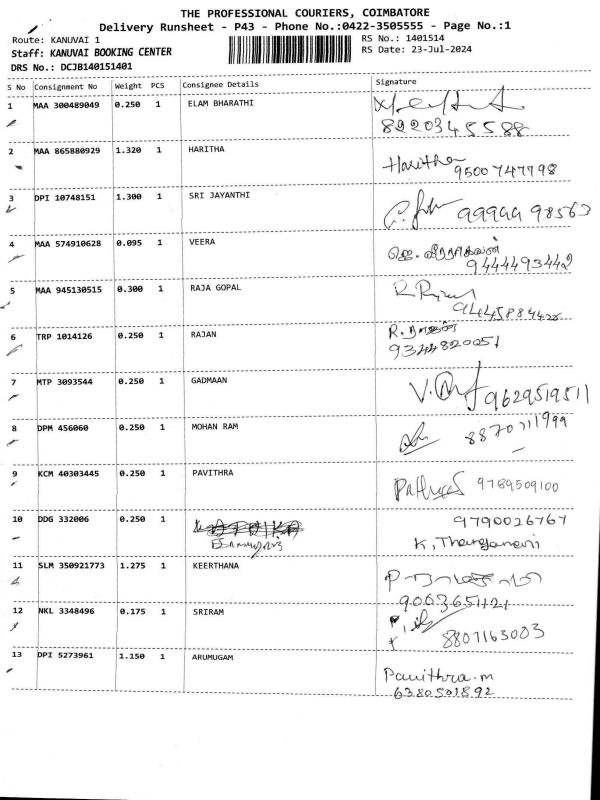 THE PROFESSIONAL COURIERS, COIMBATORE
Delivery Runsheet - P43 - Phone No.:0422-3505555 - Page No.:1
Route: KANUVAI 1 RS No.: 1401514
Staff: KANUVAI BOOKING CENTER RS Date: 23-Jul-2024
DRS No.: DCJB140151401
S No Consignment No Weight PCS Consignee Details Signature
1 MAA 300489049 0.250 1 ELAM BHARATHI
8920345588
2 MAA 865880929 1.320 1 HARITHA
Haritha 9500747798
3 DPI 10748151 1.300 1 SRI JAYANTHI
99944 98563
4 MAA 574910628 0.095 1 VEERA
ஜெ. வீரராகவன்
9444493442
5 MAA 945130515 0.300 1 RAJA GOPAL
6 TRP 1014126 0.250 1 RAJAN
R. ராஜன்
9344820051
7 MTP 3093544 0.250 1 GADMAAN
9629519511
8 DPM 456060 0.250 1 MOHAN RAM
8870711999
9 KCM 40303445 0.250 1 PAVITHRA
9789509100
10 DDG 332006 0.250 1
9790026767
K. Thangamani
11 SLM 350921773 1.275 1 KEERTHANA
9063651121
12 NKL 3348496 0.175 1 SRIRAM
8807163003
13 DPI 5273961 1.150 1 ARUMUGAM
Pavithra.m
6380501892